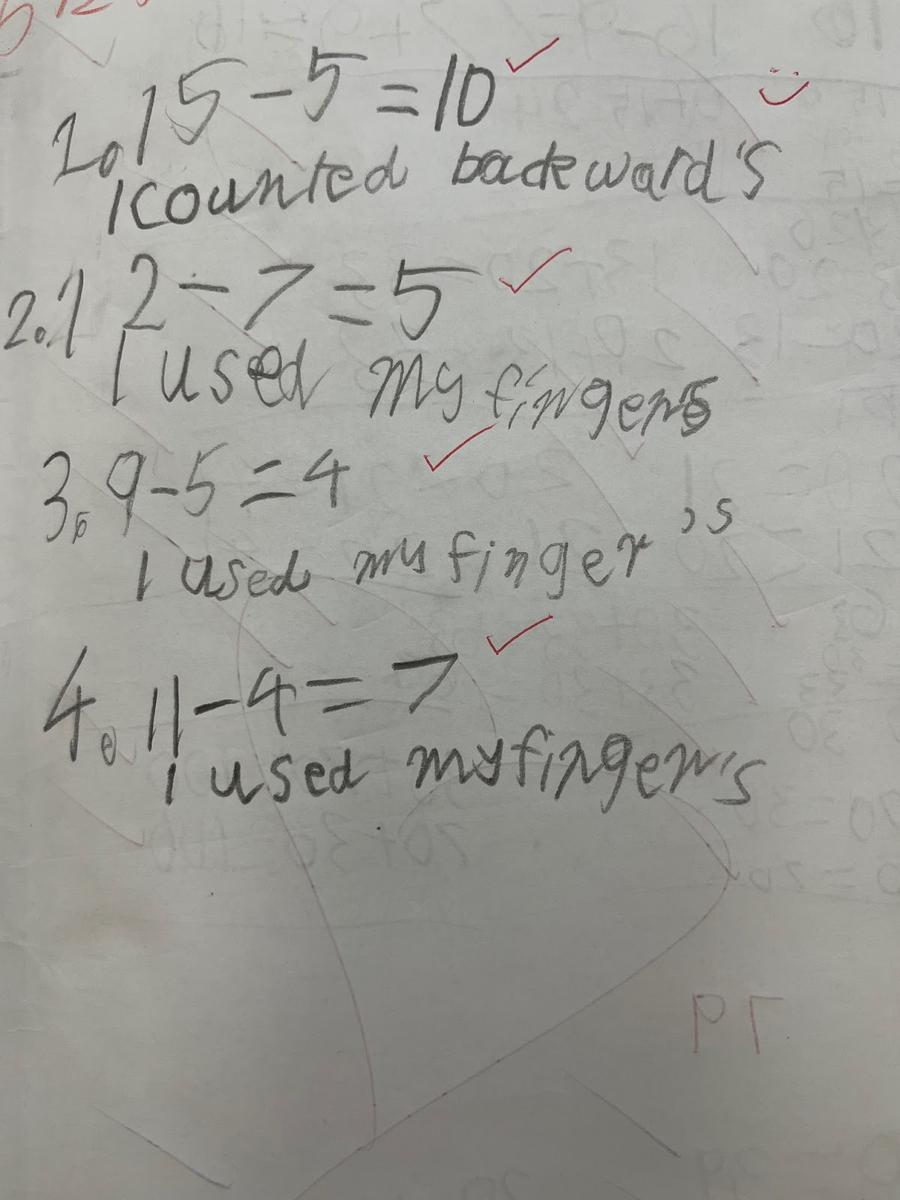 1. 15 - 5 = 10
I counted backeward's
2. 12 - 7 = 5
I used my fingers
3. 9 - 5 = 4
I used my finger's
4. 11 - 4 = 7
I used my finger's